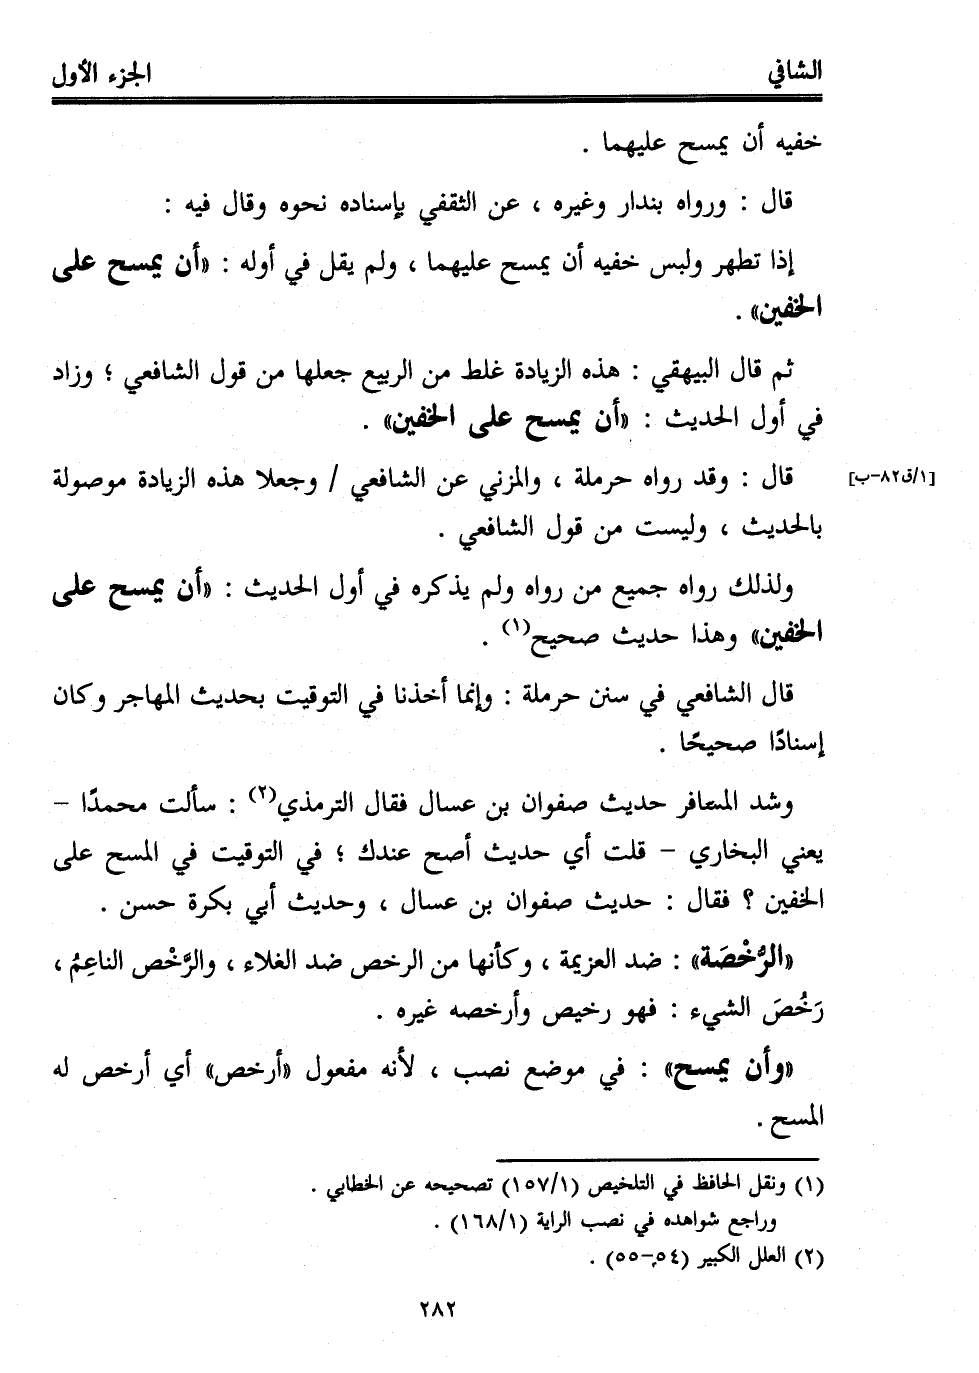 الشافي
الجزء الأول
خفيه أن يمسح عليهما .
قال : ورواه بندار وغيره ، عن الثقفي بإسناده نحوه وقال فيه :
إذا تطهر ولبس خفيه أن يمسح عليهما ، ولم يقل في أوله : «أن يمسح على
الخفين» .
ثم قال البيهقي : هذه الزيادة غلط من الربيع جعلها من قول الشافعي ؛ وزاد
في أول الحديث : «أن يمسح على الخفين» .
قال : وقد رواه حرملة ، والمزني عن الشافعي / وجعلا هذه الزيادة موصولة
[١/ق٨٢-ب]
بالحديث ، وليست من قول الشافعي .
ولذلك رواه جميع من رواه ولم يذكره في أول الحديث : «أن يمسح على
الخفين» وهذا حديث صحيح(١) .
قال الشافعي في سنن حرملة : وإنما أخذنا في التوقيت بحديث المهاجر وكان
إسنادًا صحيحًا .
وشد المسافر حديث صفوان بن عسال فقال الترمذي(٢) : سألت محمدًا –
يعني البخاري – قلت أي حديث أصح عندك ؛ في التوقيت في المسح على
الخفين ؟ فقال : حديث صفوان بن عسال ، وحديث أبي بكرة حسن .
«الرُّخْصَة» : ضد العزيمة ، وكأنها من الرخص ضد الغلاء ، والرَّخْص الناعِمُ ،
رَخُصَ الشيء : فهو رخيص وأرخصه غيره .
«وأن يمسح» : في موضع نصب ، لأنه مفعول «أرخص» أي أرخص له
المسح .
(١) ونقل الحافظ في التلخيص (١/١٥٧) تصحيحه عن الخطابي .
وراجع شواهده في نصب الراية (١/١٦٨) .
(٢) العلل الكبير (٥٤-٥٥) .
٢٨٢